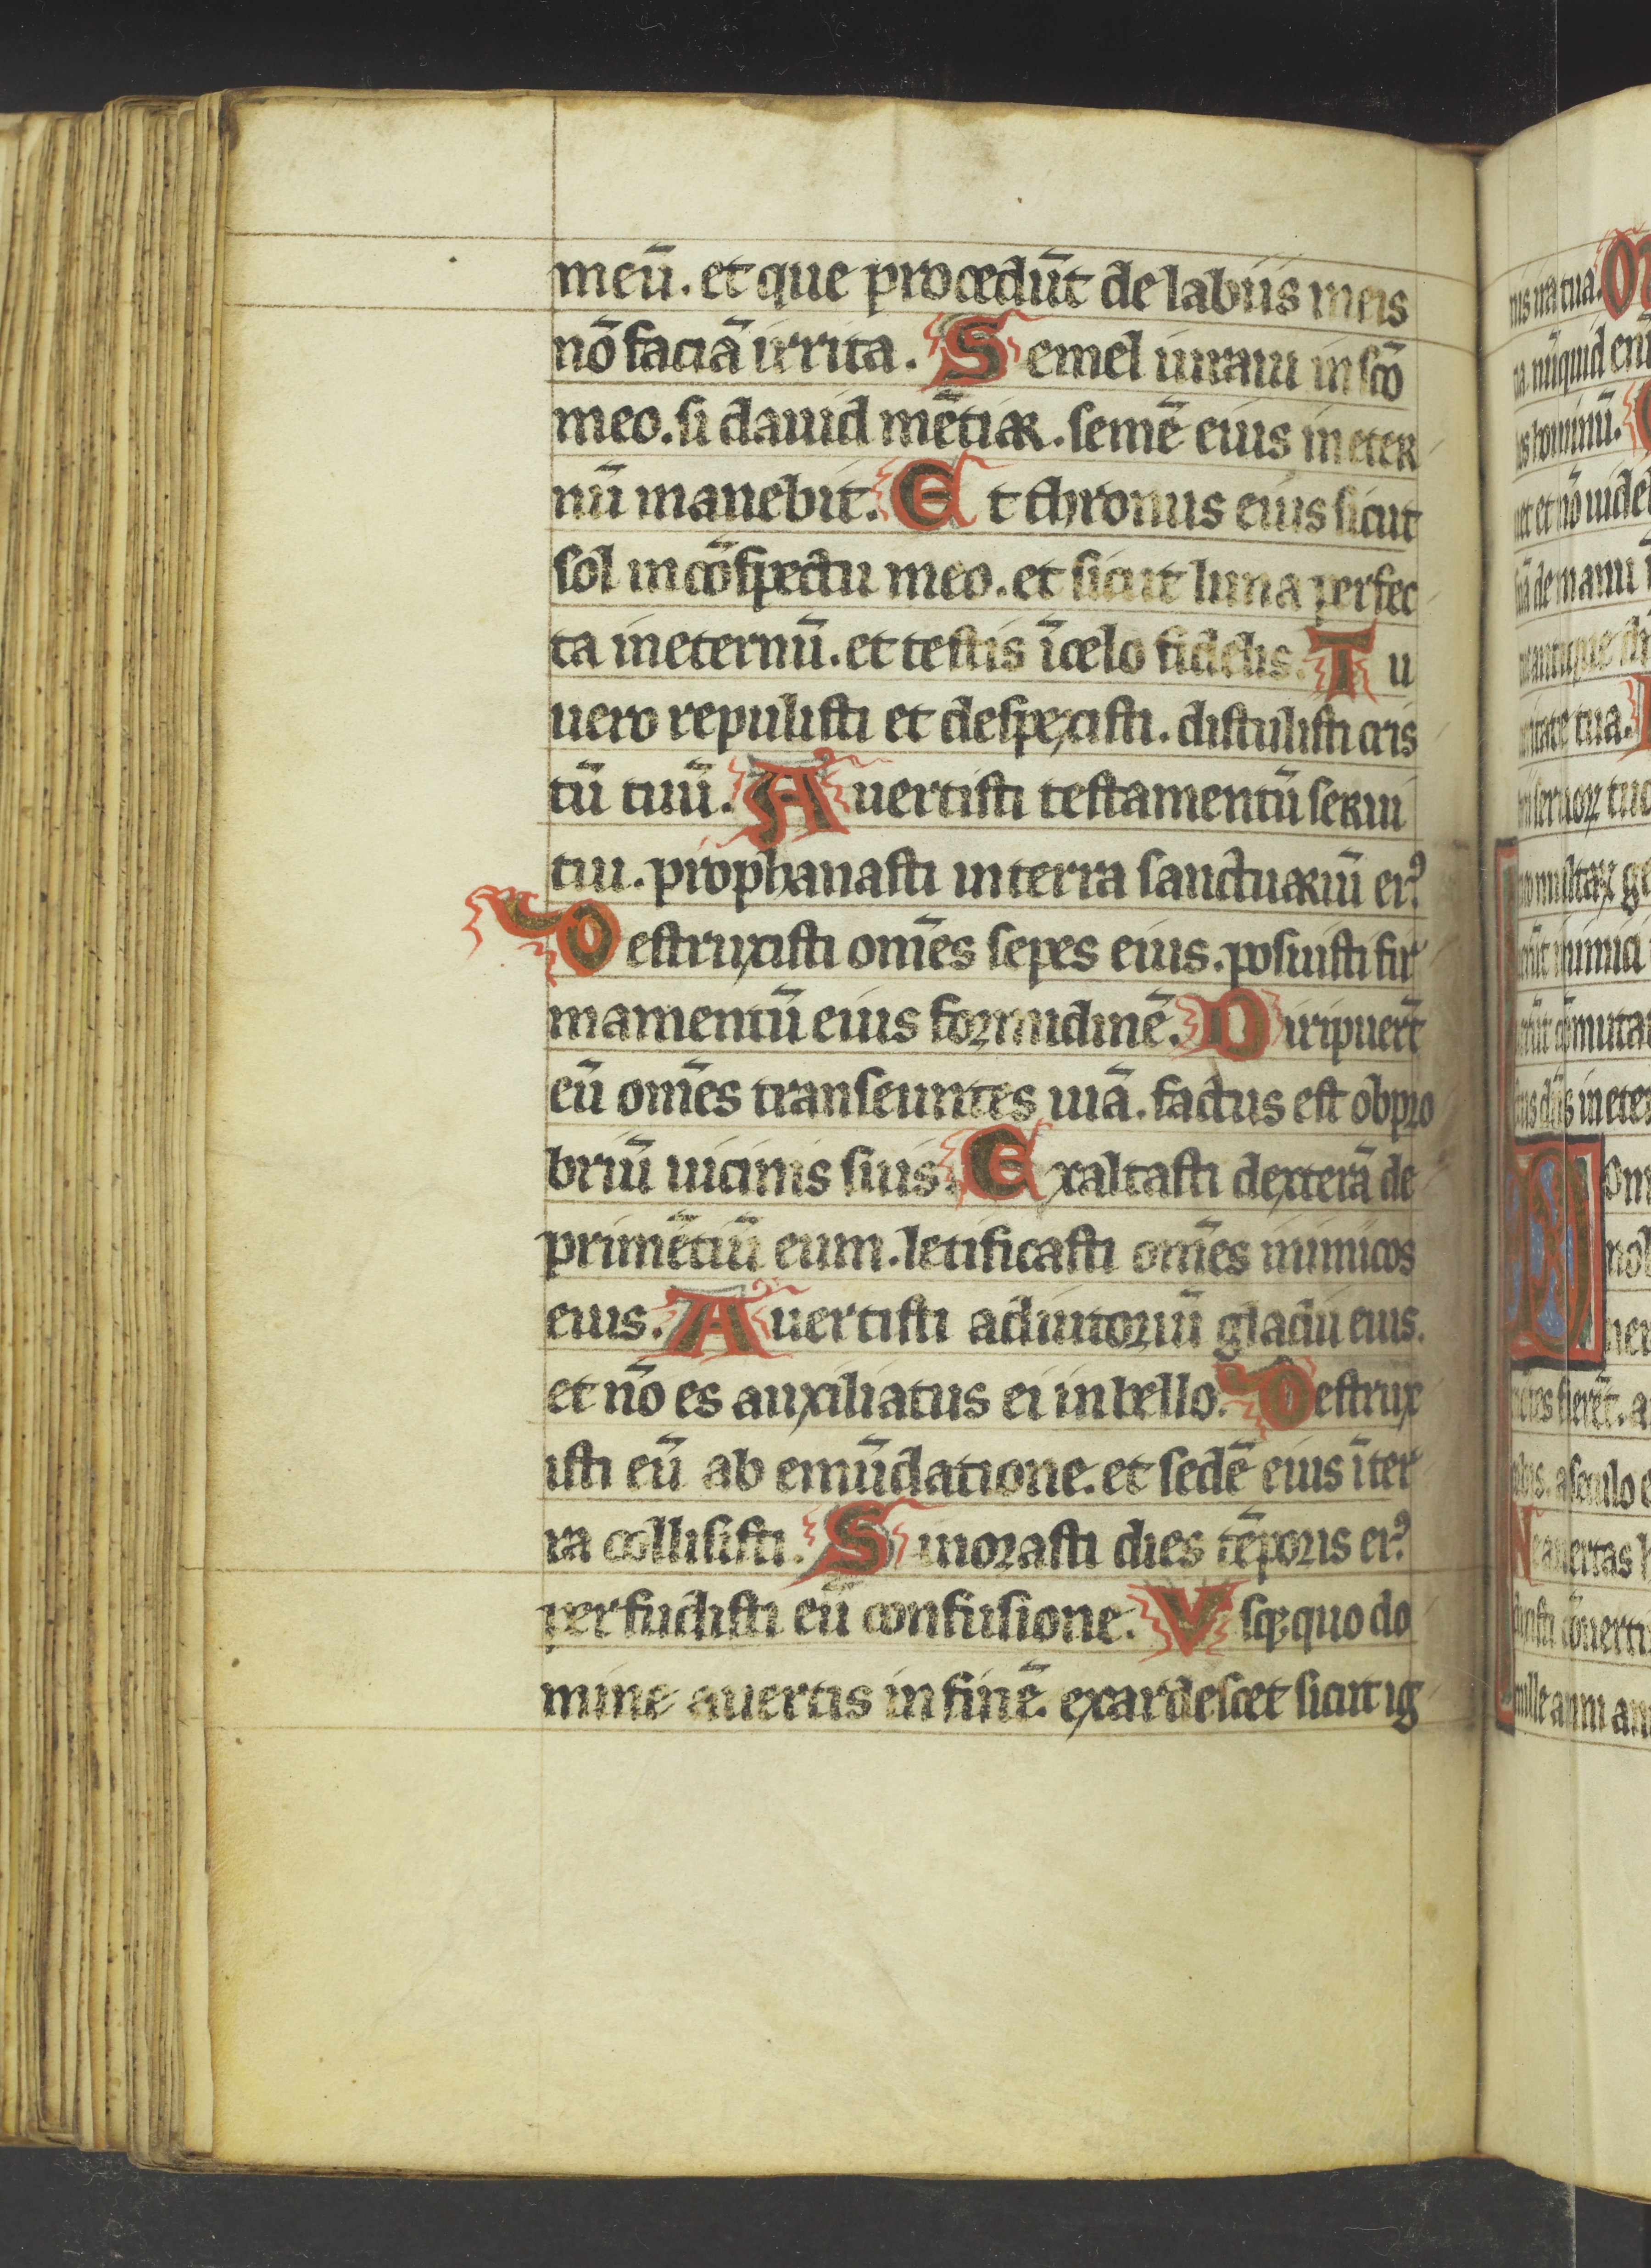 meū. et que procedūt de labiis meis
nō faciā irrita. Semel iuraui in scō
meo. si dauid mētiar. semē eius in eter
nū manebit. Et thronus eius sicut
sol in cōspectu meo. et sicut luna perfec
ta in eternū. et testis ī celo fidelis. Tu
uero repulisti et despexisti. distulisti cris
tū tuū. Auertisti testamentū serui
tui. prophanasti in terra sanctuariū eiꝰ
Destruxisti om̄es sepes eius. posuisti fir
mamentū eius formidinē. Diripuer̄t
eū om̄es transeuntes uiā. factus est obpro
briū uicinis suis. Exaltasti dexterā de
primētiū eum. letificasti om̄es inimicos
eius. Auertisti adiutoriū gladii eius.
et nō es auxiliatus ei in bello. Destrux
isti eū ab emūdatione. et sedē eius ī ter
ra collisisti. Minorasti dies tēporis eiꝰ
perfudisti eū confusione. Vsqꝫ quo do
mine auertis in finē. exardescet sicut ig